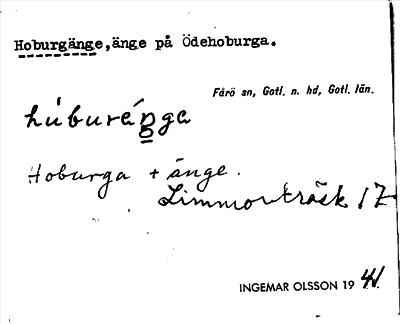 Hoburgänge, änge på Ödehoburga.
Fårö sn, Gotl. n. hd, Gotl. län.
Hoburga + änge.
Limmorträsk 17
INGEMAR OLSSON 1941.